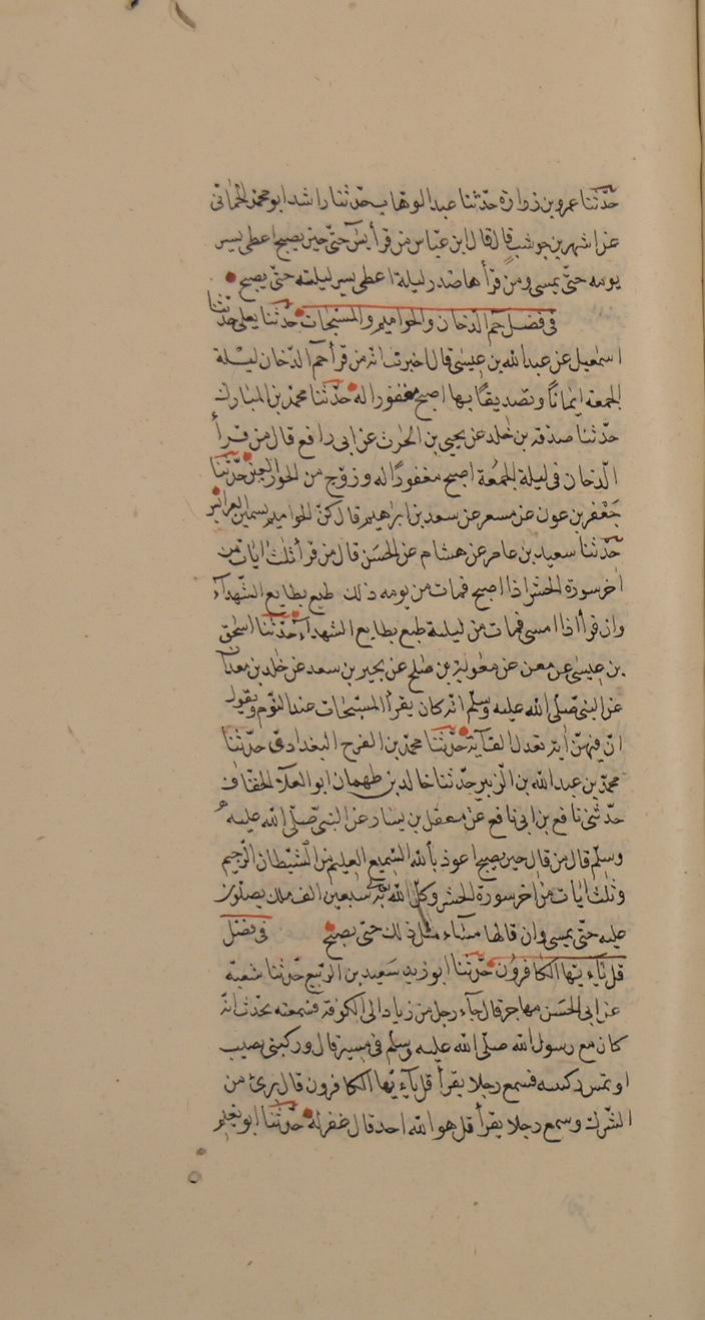 حدّثنا عمرو بن زرارة حدّثنا عبد الوهاب حدّثنا راشد ابو محمد الحمانى
عن شهر بن حوشب قال قال ابن عبّاس من قرأ يٓس حتّى حين يصبح اعطى يسر
يومه حتّى يمسى ومن قرأها صدر ليلة اعطى يسر ليلته حتّى يصبح
فى فضل حم الدّخان والحواميم والمسبّحات حدّثنا يعلى حدّثنا
اسمعيل عن عبد الله بن عيسى قال اخبرت انّه من قرأ حم الدّخان ليلة
الجمعة ايمانًا وتصديقًا بها اصبح مغفورا له حدّثنا محمد بن المبارك
حدّثنا صدقة بن خلد عن يحيى بن الحرث عن ابى رافع قال من قرأ
الدّخان فى ليلة الجمُعة اصبح مغفورًا له وزوّج من الحور العين حدّثنا
جَعْفر بن عون عن مسعر عن سعد بن ابرهيم قال كنّ الحواميم يسمين العرائس
حدّثنا سعيد بن عامر عن هشام عن الحسَن قال من قرأ ثلث ايات من
اخر سورة الحشر اذا اصبح فمات من يومه ذلك طبع بطابع الشّهدآء
وان قرأ اذا امسى فمات من ليلته طبع بطابع الشّهدآء حدّثنا اسحق
بن عيسى عن معن عن معوية بن صلح عن بحير بن سعد عن خلد بن معدان
عن النبى صلّى الله عليه وسلّم انّه كان يقرأ المسبّحات عند النّوم ويقول
انّ فيهنّ اية تعدل الف آية حدّثنا محمد بن الفرج البغدادى حدّثنا
محمد بن عبد الله بن الزّبير حدّثنا خالد بن طهمان ابو العلآء الخفّاف
حدّثنى نافع بن ابى نافع عن معقل بن يسار عن النبى صلّى الله عليه
وسلّم قال من قال حين يصبح اعوذ بالله السّميع العليم من الشّيطان الرّجيم
وثلث ايات من اخر سورة الحشر وكّل الله به سبعين الف ملك يصلّون
عليه حتّى يمسى وان قالها مسآء مثل ذلك حتى يصبح فى فضل
قل يآءيّها الكافرون حدّثنا ابو زيد سَعيد بن الرّبيع حدّثنا شعبة
عن ابى الحسَن مهاجر قال جآء رجل من زياد الى الكوفة فسمعته يحدّث انّه
كان مع رسول الله صلّى الله عليه وسلّم فى مسير قال وركبتى تصيب
او تمسّ ركبته فسمع رجلا يقرأ قل يآءيّها الكافرون قال برئ من
الشّرك وسمع رجلا يقرأ قل هو الله احد قال غفر له حدّثنا ابو نعيم